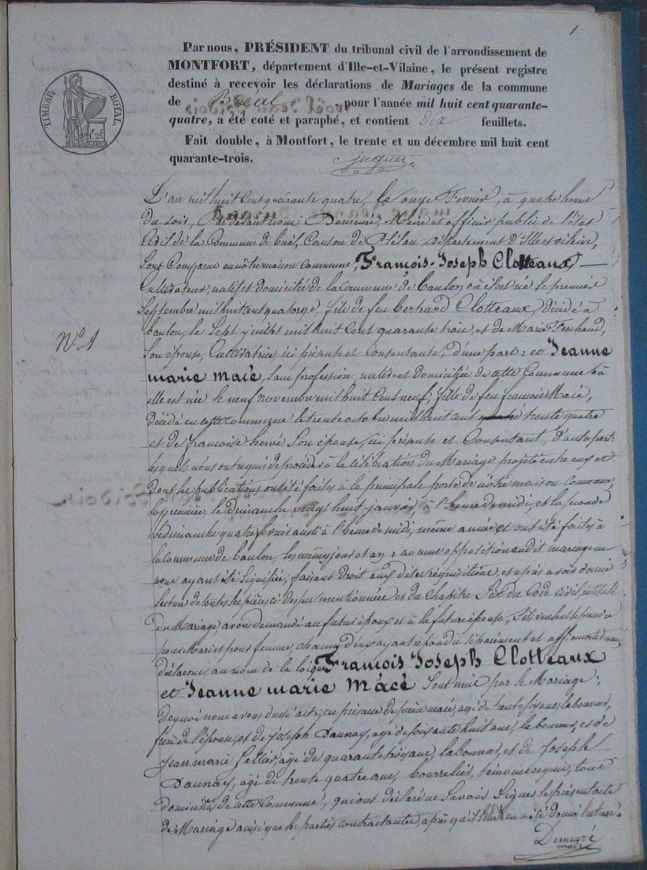 1
Par nous, PRÉSIDENT du tribunal civil de l'arrondissement de
MONTFORT, département d'Ille-et-Vilaine, le présent registre
destiné à recevoir les déclarations de Mariages de la commune
de pour l'année mil huit cent quarante-
quatre, a été coté et paraphé, et contient dix feuillets.
Fait double, à Montfort, le trente et un décembre mil huit cent
quarante-trois.
TIMBRE ROYAL
L'an mil huit cent quarante quatre, le onze Fevrier, à quatre heures
du soir, Pardevant nous Demeuré, Maire et officier public de l'état
Civil de la Commune de Canton de Plélan, département d'Ille et vilaine,
Sont Comparu en nôtre maison commune, François-Joseph Clotteaux
Cultivateur, natif et domicilié de la Commune de baulon, où il est né le premier
Septembre mil huit cent quatorze, fils de feu bertrand Clotteaux, décédé à
baulon, le Sept mil huit cent quarante trois, et de Marie
Son épouse, Cultivatrice, ici présente et Consentante, d'une part: et Jeanne
N° 1
marie macé, Sans profession, native et domiciliée de cette Commune où
elle est née le neuf novembre mil huit cent neuf, fille de feu françois Macé,
décédé en cette commune le trente octobre mil huit cent trente quatre
et de francoise hervé Son épouse, ici présente et Consentant, d'autre part
lesquels nous ont requis de procéder à la célébration du Mariage projeté entre eux et
dont les publications ont été faites à la principale porte de notre maison commune
le dimanche vingt huit janvier à l'heure de midi, et la seconde
le dimanche quatre fevrier aussi à l'heure de midi, même année et ont été faites à
la Commune de baulon, les mêmes jours et an, aucune opposition audit mariage ne
nous ayant été Signifiée, faisant droit aux dites réquisitions, et après avoir donné
lecture de toutes les pièces ci dessus mentionnées et du chapitre Six du Code civil, intitulé
Du Mariage, avons demandé au futur époux et à la future épouse, S'ils veulent se prendre
pour Mari et pour femme, chacun d'eux ayant répondu séparément et affirmativement
déclarons, au nom de la loi que François Joseph Clotteaux
et Jeanne marie Macé Sont unis par le Mariage:
de quoi nous avons dressé acte, en présence de macé, agé de trente ans, laboureur,
frère de l'épouse, et de Joseph Daunay, agé de Soixante huit ans, laboureur, et de
Jean marie agé de quarante ans, laboureur, et de Joseph
Daunay, agé de trente quatre ans, bourrelier, témoins requis, tous
domiciliés de cette Commune, qui ont déclaré ne Savoir Signer le présent acte
de Mariage ainsi que les parties contractantes, après qu'il leur en a été donné lecture.
maire